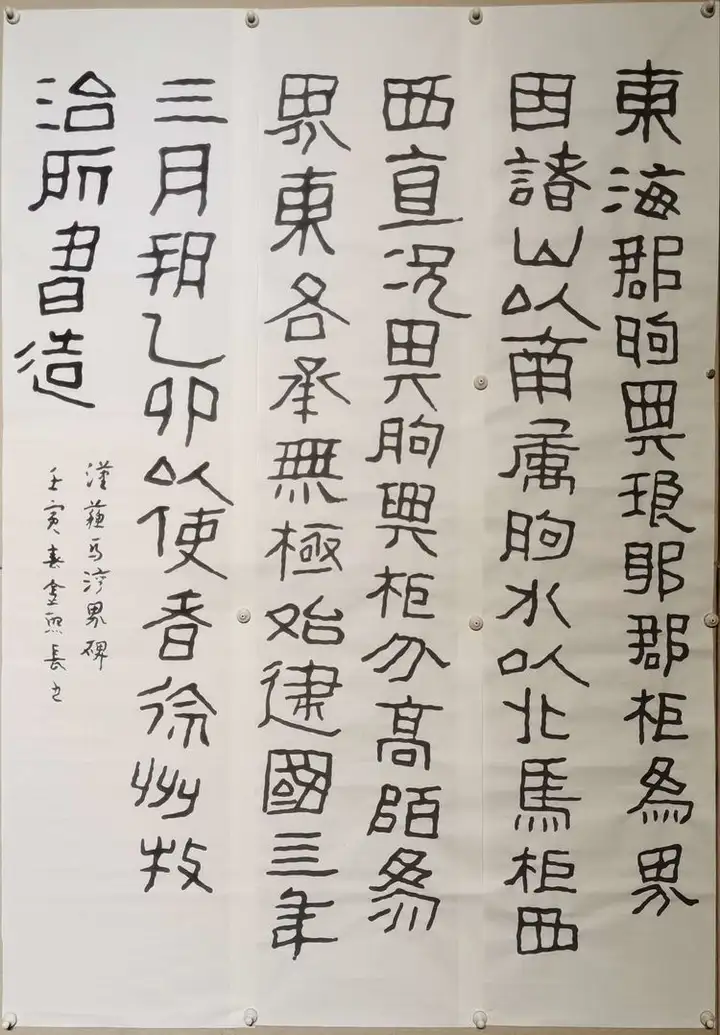 東海郡朐與琅耶郡柜為界
因諸山以南属朐水以北馬柜西
西直况其朐與柜分高陌為
界東各承無極始建國三年
三月朔乙卯以使者徐州牧
治所書造
漢蘇馬湾界碑
壬寅春